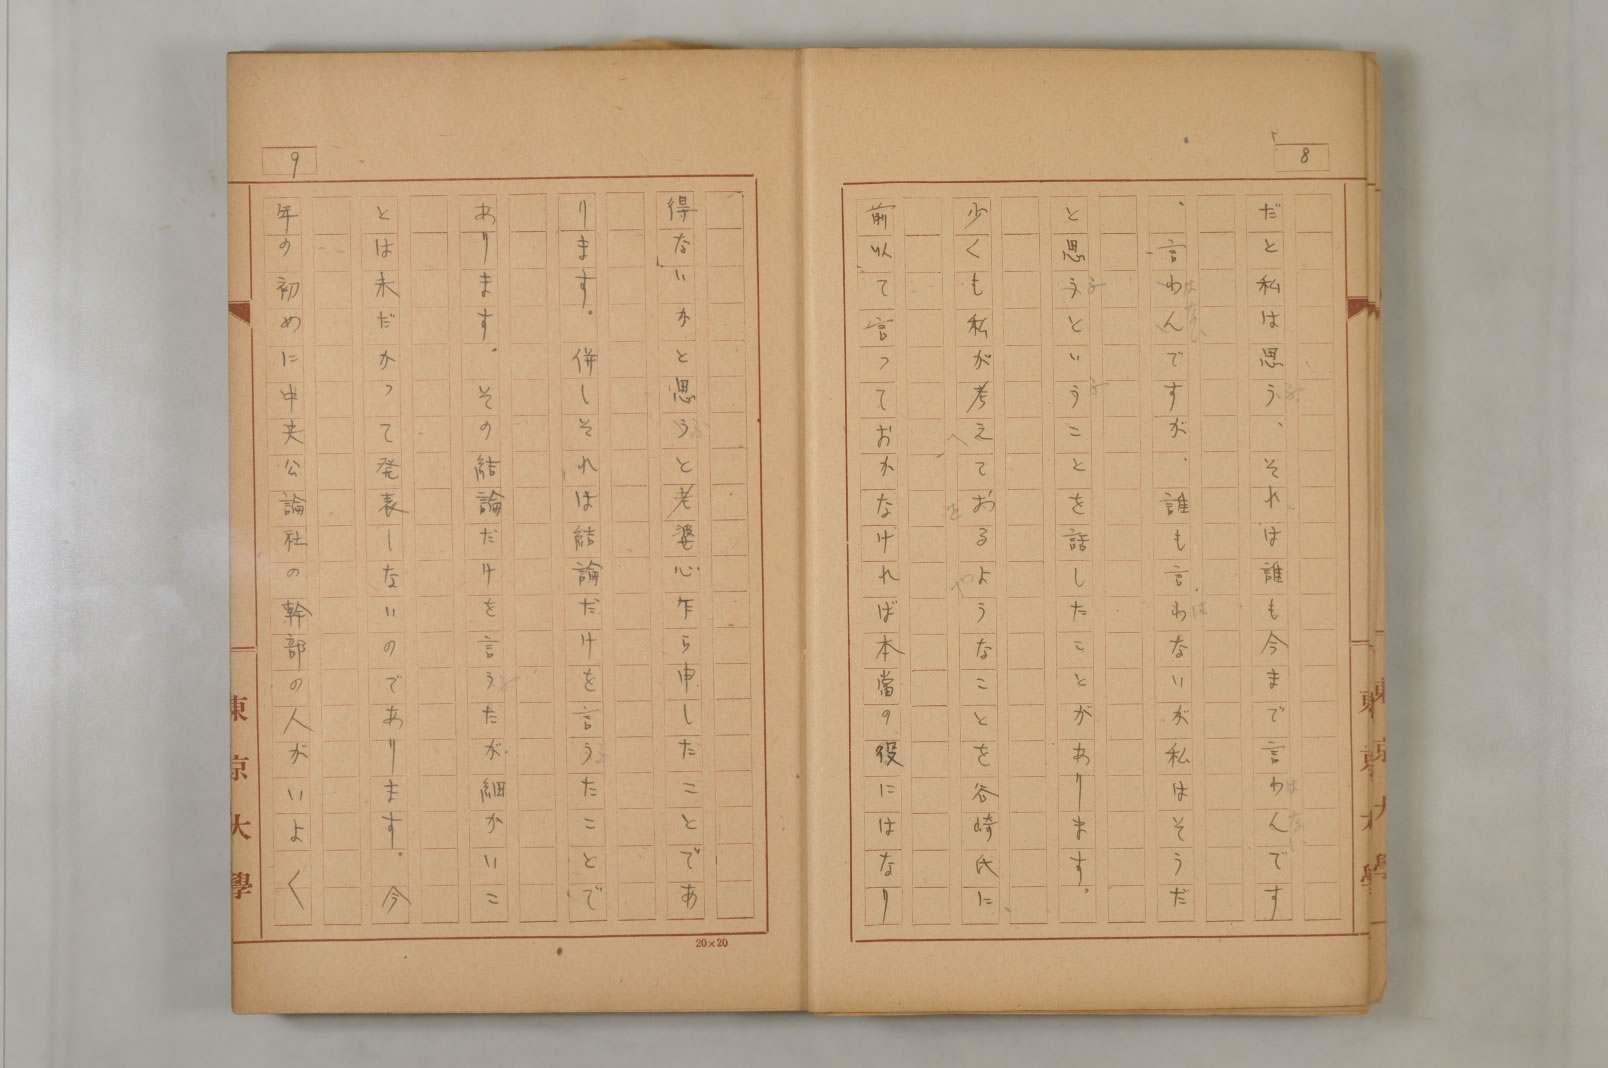 8
だと私は思う、それは誰も今まで言わんです
、言わんですが、誰も言わないが私はそうだ
と思うということを話したことがあります。
少くも私が考えておるようなことを谷崎氏に
前以て言っておかなければ本當の役にはなり
9
得ないかと思うと老婆心乍ら申したことであ
ります。併しそれは結論だけを言うたことで
あります。その結論だけを言うたが細かいこ
とは未だかつて発表しないのであります。今
年の初めに中央公論社の幹部の人がいよく
東京大學
20×20